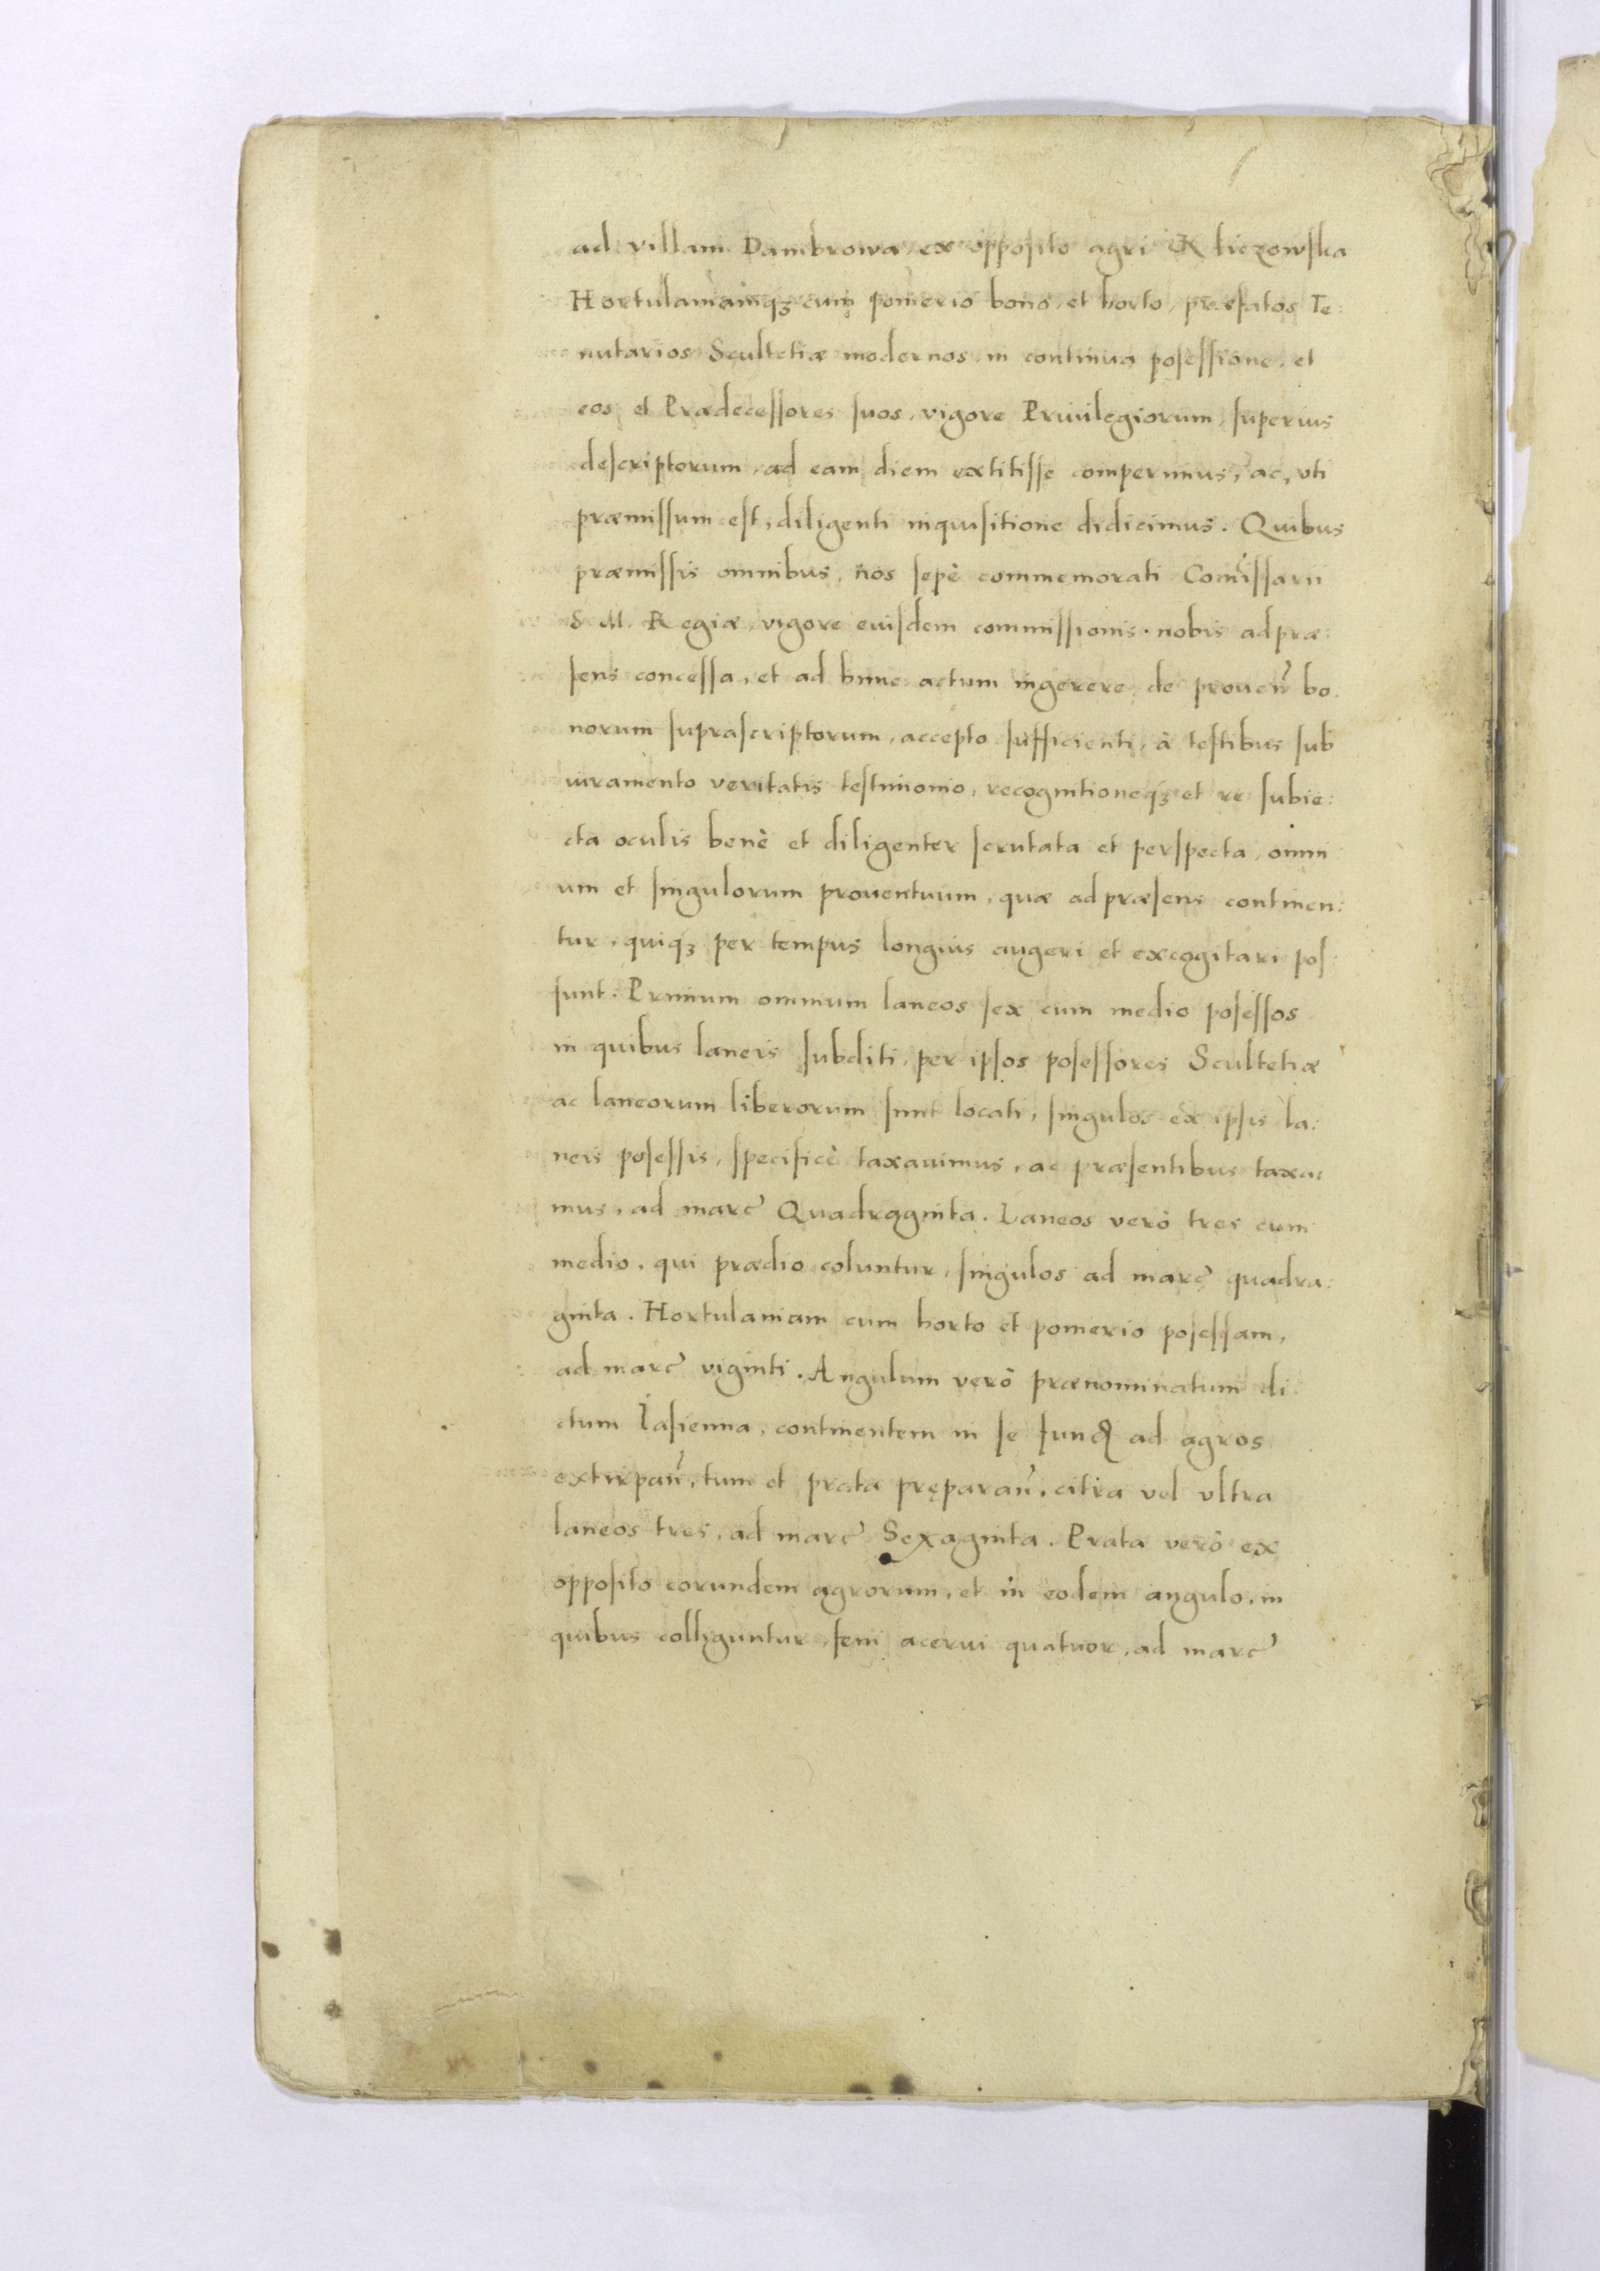 ad villam Dambrowa ex opposito agri Kliczowska
Hortulaniamqꝫ cum pomerio bono, et horto, præfatos Te:
nutarios Scultetiæ modernos in continua poſeſſione, et
eos et Prædeceſſores ſuos, vigore Priuilegiorum, ſuperius
deſcriptorum, ad eam diem extitiſſe comperimus, ac, vti
præmiſſum eſt, diligenti inquiſitione didicimus. Quibus
præmiſſis omnibus, nos ſepè commemorati Com̃iſſarii
S. M. Regiæ, vigore eiuſdem commiſſionis nobis ad præ:
ſens conceſſa, et ad hunc actum ingerere, de prouen̄ bo:
norum ſupraſcriptorum, accepto ſufficienti, à teſtibus ſub
iuramento veritatis teſtimonio, recognitioneqꝫ et re ſubie:
cta oculis benè et diligenter ſcrutata et perſpecta, omni
um et ſingulorum prouentuum, quæ ad præſens continen:
tur, quiqꝫ per tempus longius augeri et excogitari poſ:
ſunt. Primum omnium laneos ſex cum medio poſeſſos
in quibus laneis ſubditi, per ipſos poſeſſores Scultetiæ
ac laneorum liberorum ſunt locati, ſingulos ex ipſis la:
neis poſeſſis, ſpecificè taxauimus, ac præſentibus taxa:
mus, ad marc̃ Quadraginta. Laneos verò tres cum
medio, qui prædio coluntur, ſingulos ad marc̃ quadra:
ginta. Hortulaniam cum horto et pomerio poſeſſam,
ad marc̃ viginti. Angulum verò prænominatum di:
ctum Iaſienna, continentem in ſe ad agros
extirpan̄, tum et prata pręparan̄, citra vel vltra
laneos tres, ad marc̃ Sexaginta. Prata verò ex
oppoſito eorundem agrorum, et in eodem angulo, in
quibus colliguntur feni acerui quatuor, ad marc̃